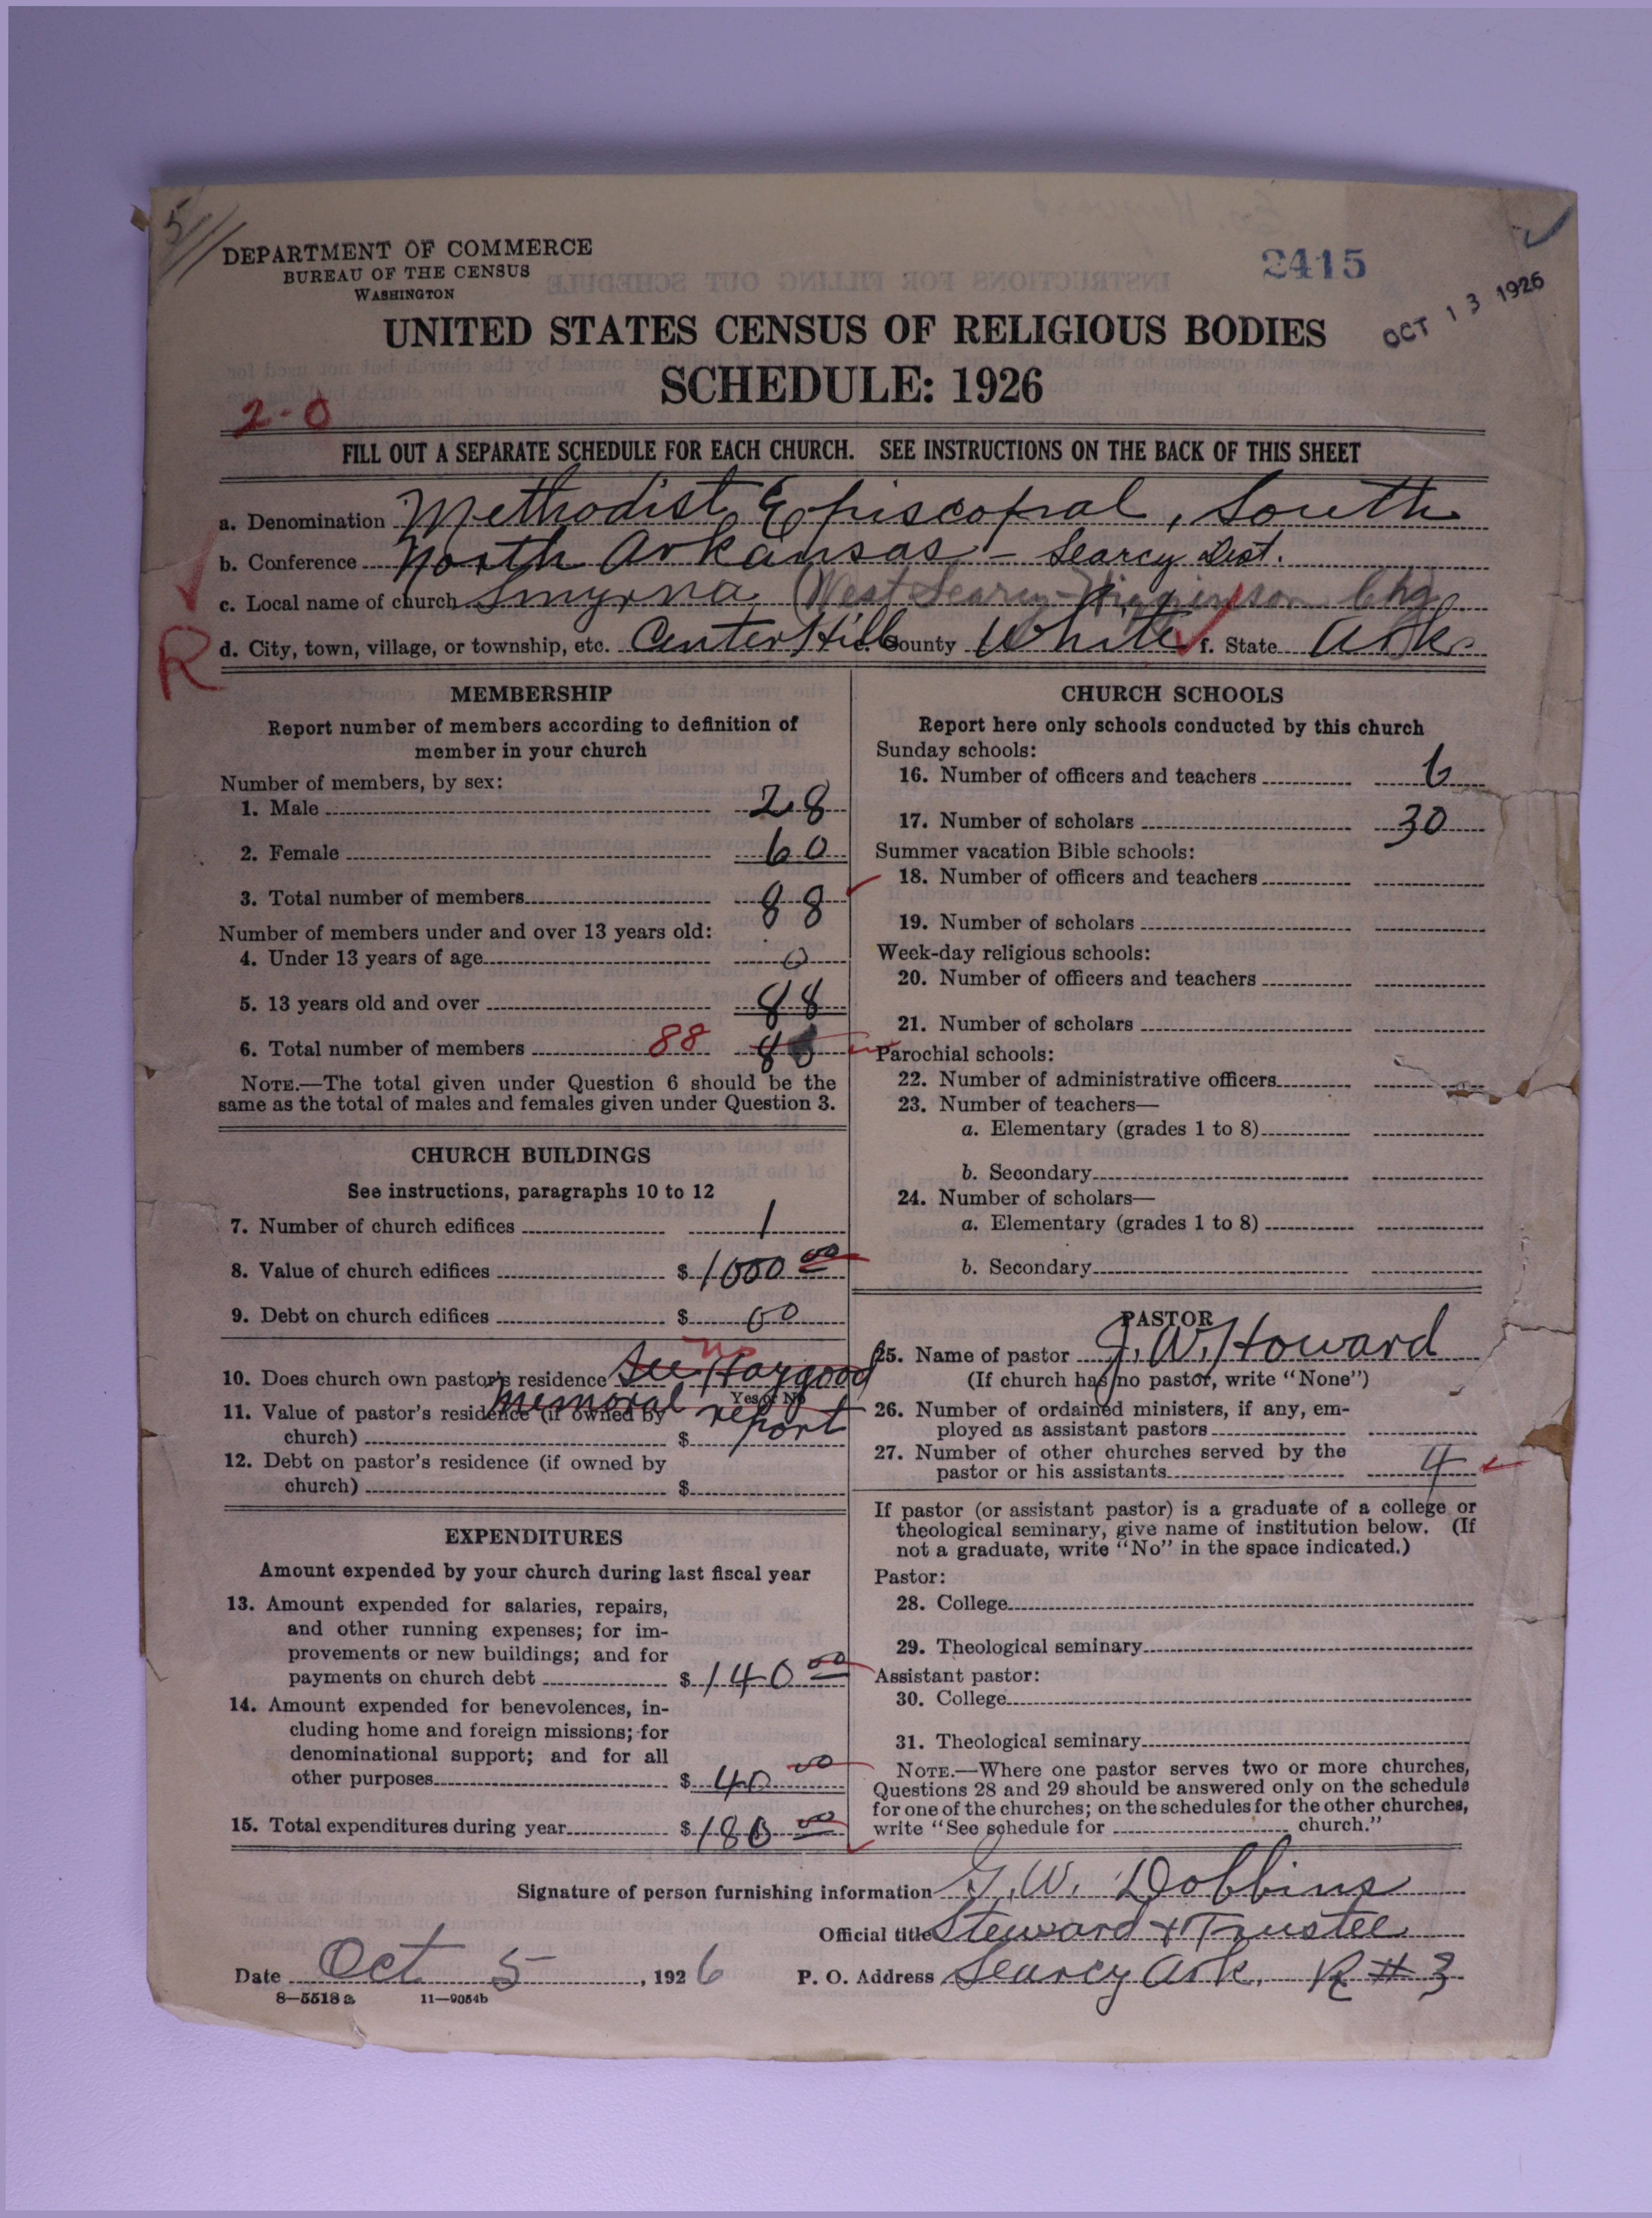 5
DEPARTMENT OF COMMERCE
BUREAU OF THE CENSUS
WASHINGTON
2415
OCT 13 1926
UNITED STATES CENSUS OF RELIGIOUS BODIES
SCHEDULE: 1926
2-0
FILL OUT A SEPARATE SCHEDULE FOR EACH CHURCH. SEE INSTRUCTIONS ON THE BACK OF THIS SHEET
a. Denomination Methodist Episcopal, South
b. Conference North Arkansas - Searcy Dist.
c. Local name of church Smyrna (West Searcy-Higginson Chg
R
d. City, town, village, or township, etc. Center Hill County White f. State Ark.
MEMBERSHIP
Report number of members according to definition of
member in your church
Number of members, by sex:
1. Male 28
2. Female 60
3. Total number of members 88
Number of members under and over 13 years old:
4. Under 13 years of age 0
5. 13 years old and over 88
6. Total number of members 88
NOTE.—The total given under Question 6 should be the
same as the total of males and females given under Question 3.
CHURCH BUILDINGS
See instructions, paragraphs 10 to 12
7. Number of church edifices 1
8. Value of church edifices $ 1000 00
9. Debt on church edifices $ 00
10. Does church own pastor's residence See Haygood no
Yes or No
memoral report
11. Value of pastor's residence (if owned by
church) $
12. Debt on pastor's residence (if owned by
church) $
EXPENDITURES
Amount expended by your church during last fiscal year
13. Amount expended for salaries, repairs,
and other running expenses; for im-
provements or new buildings; and for
payments on church debt $ 140 00
14. Amount expended for benevolences, in-
cluding home and foreign missions; for
denominational support; and for all
other purposes $ 40 00
15. Total expenditures during year $ 180 00
CHURCH SCHOOLS
Report here only schools conducted by this church
Sunday schools:
16. Number of officers and teachers 6
17. Number of scholars 30
Summer vacation Bible schools:
18. Number of officers and teachers
19. Number of scholars
Week-day religious schools:
20. Number of officers and teachers
21. Number of scholars
Parochial schools:
22. Number of administrative officers
23. Number of teachers—
a. Elementary (grades 1 to 8)
b. Secondary
24. Number of scholars—
a. Elementary (grades 1 to 8)
b. Secondary
PASTOR
25. Name of pastor J. W. Howard
(If church has no pastor, write "None")
26. Number of ordained ministers, if any, em-
ployed as assistant pastors
27. Number of other churches served by the
pastor or his assistants 4
If pastor (or assistant pastor) is a graduate of a college or
theological seminary, give name of institution below. (If
not a graduate, write "No" in the space indicated.)
Pastor:
28. College
29. Theological seminary
Assistant pastor:
30. College
31. Theological seminary
NOTE.—Where one pastor serves two or more churches,
Questions 28 and 29 should be answered only on the schedule
for one of the churches; on the schedules for the other churches,
write "See schedule for church."
Signature of person furnishing information G. W. Dobbins
Official title Steward & Trustee
Date Oct 5, 1926 P. O. Address Searcy Ark. R # 3
8—5518 a 11—9054b